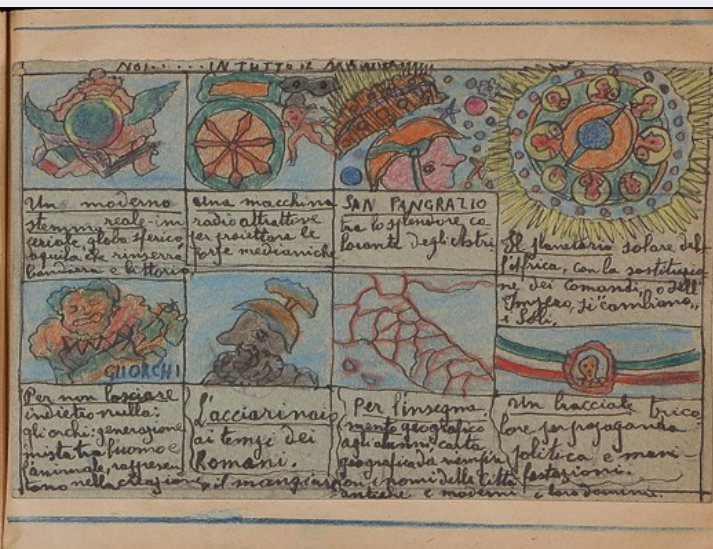 NOI..... IN TUTTO IL
Un moderno
stemma reale-im
periale, globo sferico
aquila che rinserra
bandiera e littorio
Una macchina
radio attrattive
per proiettare le
forse medianiche
SAN PANGRAZIO
tra lo splendore co
lorante degli Astri.
Il planetario solare del
l'Africa, con la sostituzio
ne dei Comandi, o dell'
Impero, si "cambiano"
i Soli,
GLI ORCHI
Per non lasciare
indietro nulla:
gli orchi: generazione
mista tra l'uomo e
l'animale, rappresen
tano nella creazione il mangiare
L'acciarinaio
ai tempi dei
Romani.
Per l'insegna-
mento geografico
agli alunni, carta
geografica da riempir
con i nomi delle città
antiche e moderni e loro dominii.
Un bracciale trico
lore per propaganda
politica e mani-
festazioni.